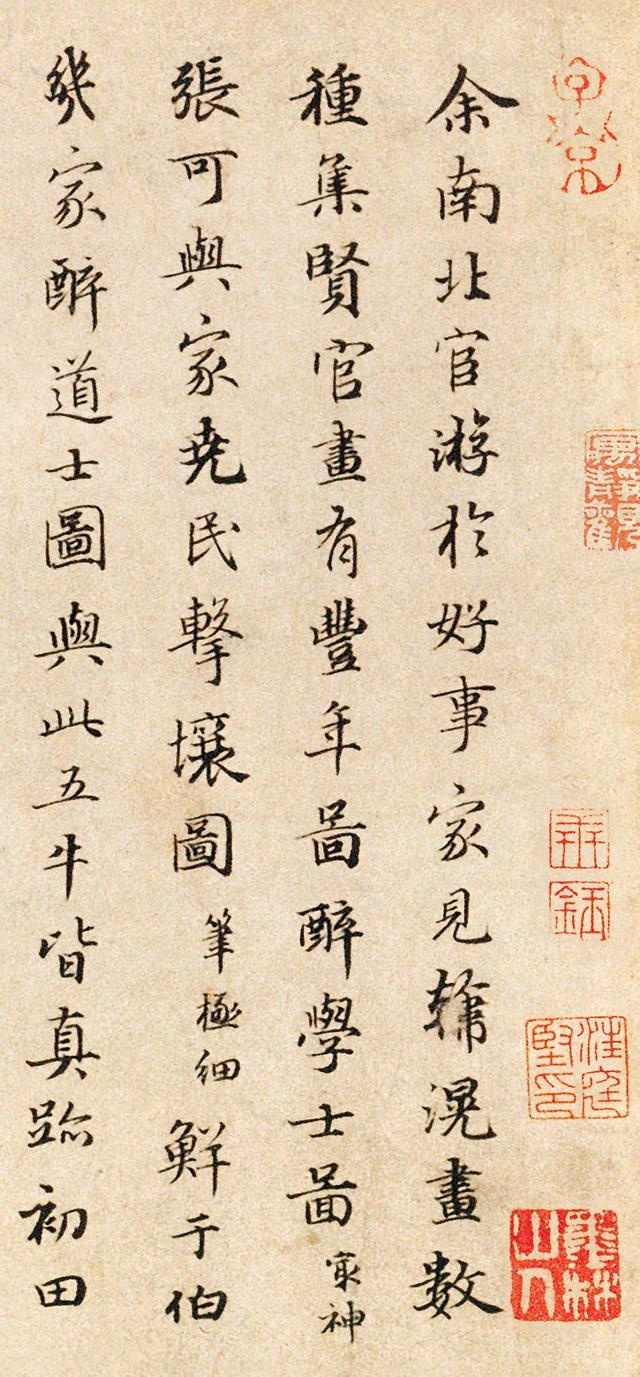 墨林山人
余南北宦游於好事家見韓滉畫數
種集賢官畫有豐年啚醉學士啚㝡神
張可與家堯民擊壤圖筆極細鮮于伯
幾家醉道士圖與此五牛皆真跡初田